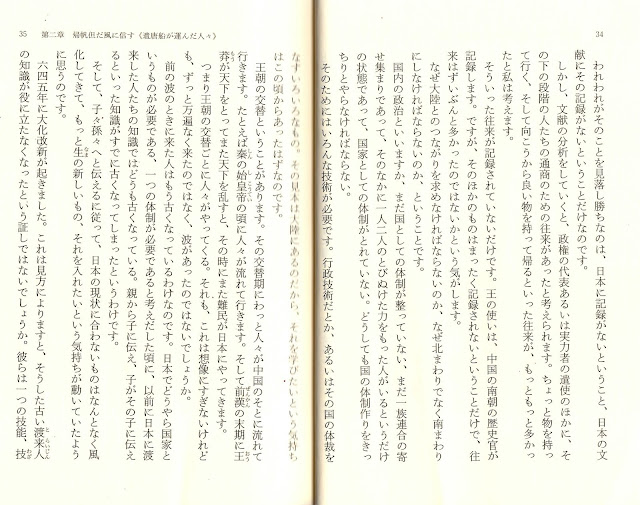 34
われわれがそのことを見落し勝ちなのは、日本に記録がないということ、日本の文
献にその記録がないということだけなのです。
しかし、文献の分析をしていくと、政権の代表あるいは実力者の遣使のほかに、そ
の下の段階の人たちの通商のための往来があったと考えられます。ちょっと物を持っ
て行く、そして向こうから良い物を持って帰るといった往来が、もっともっと多かっ
たと私は考えます。
そういった往来が記録されていないだけです。王の使いは、中国の南朝の歴史官が
記録します。ですが、そのほかのものはまったく記録されないということだけで、往
来はずいぶんと多かったのではないかという気がします。
なぜ大陸とのつながりを求めなければならないのか、なぜ北まわりでなく南まわり
にしなければならないのか、ということです。
国内の政治といいますか、まだ国としての体制が整っていない、まだ一族連合の寄
せ集まりであって、そのなかに一人二人のとびぬけた力をもった人がいるというだけ
の状態であって、国家としての体制がとれていない。どうしても国の体制作りをきっ
ちりとやらなければならない。
そのためにはいろんな技術が必要です。行政技術だとか、あるいはその国の体裁を
35 第二章 帰帆但だ風に信す《遣唐船が運んだ人々》
なすいろいろなもの。の見本は大陸にあるのだから、それを学びたいという気持ち
はこの頃からあったはずなのです。
王朝の交替ということがあります。その交替期にわっと人々が中国のそとに流れて
行きます。たとえば秦の始皇帝の頃に人々が流れて行きます。そして前漢の末期に王
莽が天下をとってまた天下を乱すと、その時にまた難民が日本にやってきます。
つまり王朝の交替ごとに人々がやってくる。それも、これは想像にすぎないけれど
も、ずっと万遍なく来たのではなく、波があったのではないでしょうか。
前の波のときに来た人はもう古くなっているわけなのです。日本でどうやら国家と
いうものが必要である、一つの体制が必要であると考えだした頃に、以前に日本に渡
来した人たちの知識ではどうも古くなっている。親から子に伝え、子がその子に伝え
るといった知識がすでに古くなってしまったというわけです。
そして、子々孫々へと伝えるに従って、日本の現状に合わないものはなんとなく風
化してきて、もっと生の新しいもの、それを入れたいという気持ちが動いていたよう
に思うのです。
六四五年に大化改新が起きました。これは見方によりますと、そうした古い渡来人
の知識が役に立たなくなったという証しではないでしょうか。彼らは一つの技能、技